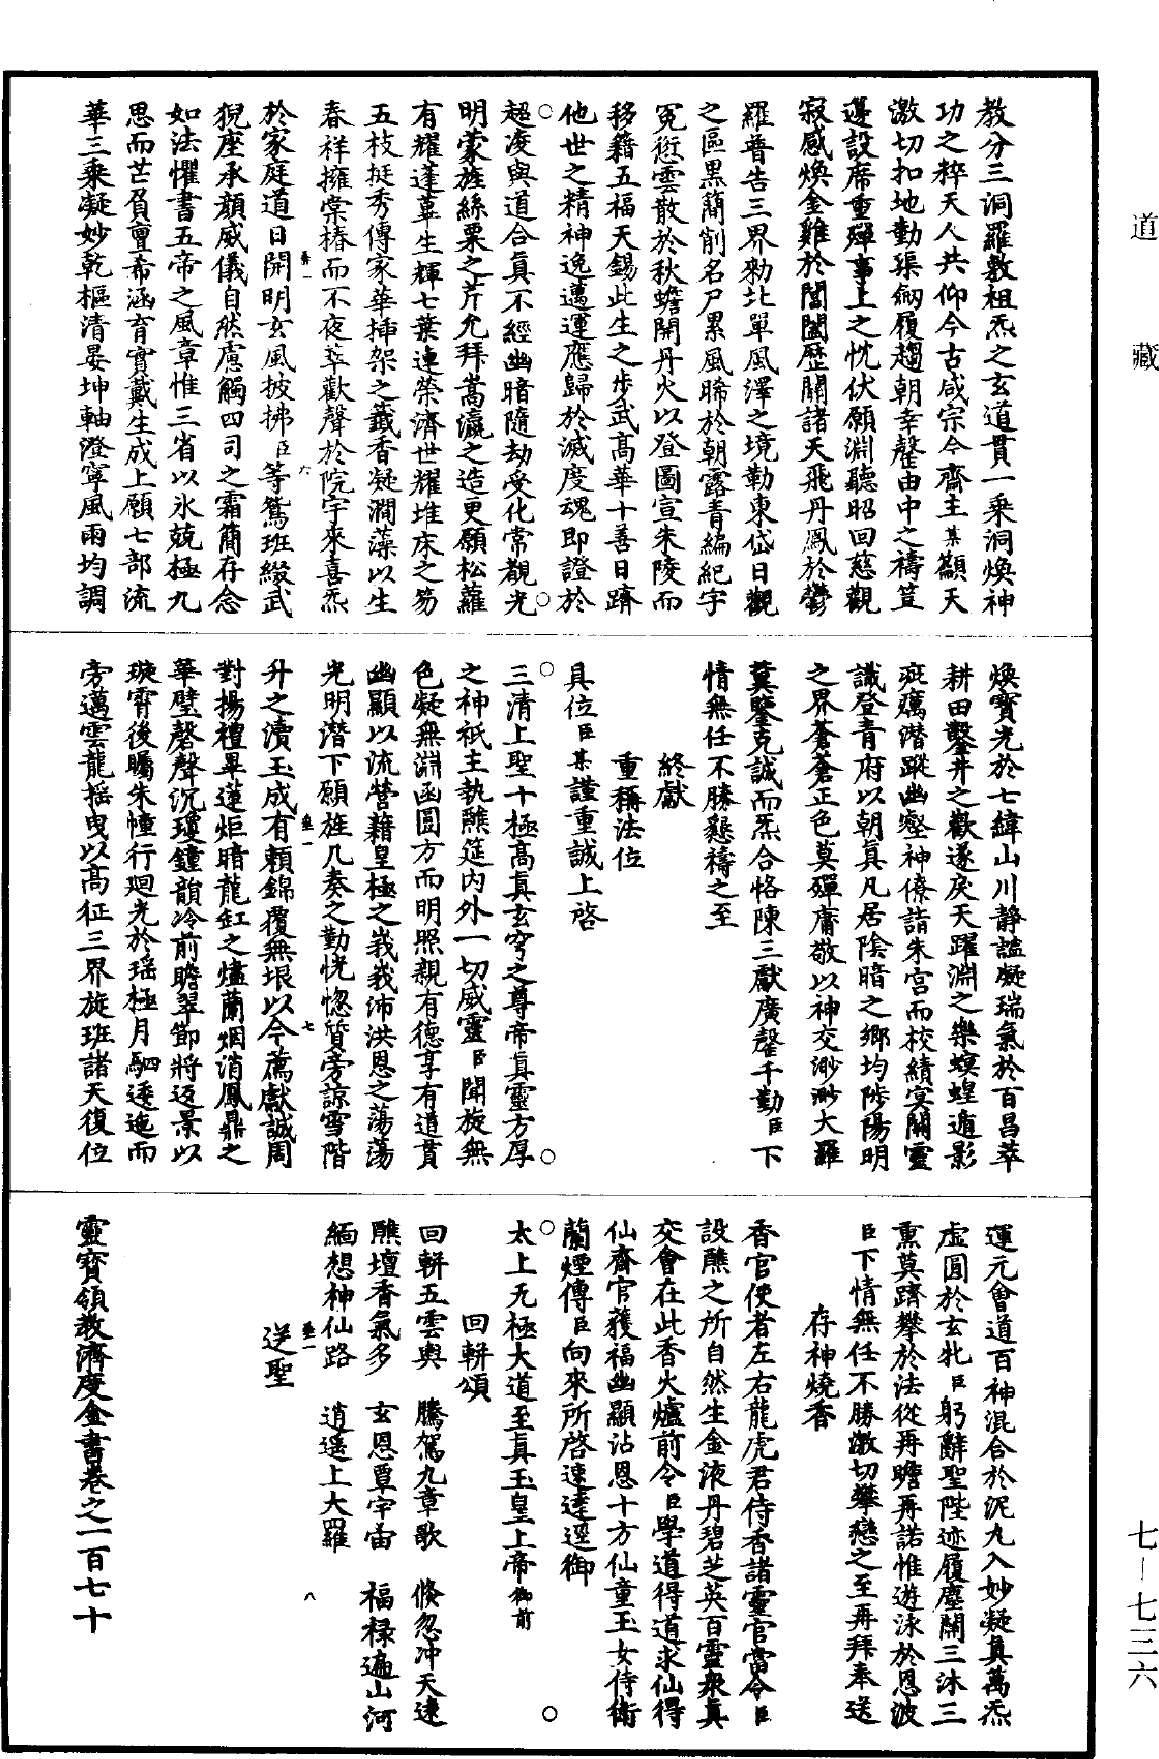 道藏
教分三洞羅敷祖炁之玄道貫一乘洞煥神
功之粹天人共仰今古咸宗今齋主某顓天
激切扣地勤渠劒履趨朝幸罄由中之禱豈
筵設席重殫事上之忱伏願淵聽昭回慈觀
寂感煥金雞於閶闔歷關諸天飛丹鳳於鬱
羅普告三界勑北單風澤之境勒東岱日觀
之區黑簡削名尸累風晞於朝露青編紀字
冤愆雲散於秋蟾開丹火以登圖宣朱陵而
移籍五福天錫此生之步武高華十善日躋
他世之精神逸邁運應歸於滅度魂即證於
超凌與道合真不經幽暗隨劫受化常覩光
明蒙旌絲粟之芹允拜嵩瀛之造更願松蘿
有耀蓬蓽生輝七葉連榮濟世耀堆床之笏
五枝挺秀傳家華插架之籤香凝澗藻以生
春祥擁棠椿而不夜萃歡聲於院宇來喜炁
於家庭道日開明玄風披拂臣等鴛班綴武
猊座承顏威儀自然慮觸四司之霜簡存念
如法懼書五帝之風章惟三省以氷兢極九
思而芒負亶希涵育實戴生成上願七部流
華三乘凝妙乾樞清晏坤軸澄寧風雨均調
煥寶光於七緯山川靜謐凝瑞氣於百昌萃
耕田鑿井之歡遂戾天躍淵之樂螟蝗遁影
疵癘潛蹤幽壑神僚詣朱宮而校績冥關靈
識登青府以朝真凡居陰暗之鄉均陟陽明
之界蒼蒼正色莫殫膚敬以神交渺渺大羅
冀鑒克誠而炁合恪陳三獻廣罄千勤臣下
情無任不勝懇禱之至
終獻
重稱法位
具位臣某謹重誠上啓
三清上聖十極高真玄穹之尊帝真靈方厚
之神祇主執醮筵内外一切威靈臣聞旋無
色凝無淵函圓方而明照親有德享有道貫
幽顯以流營藉皇極之峩峩沛洪恩之蕩蕩
光明潛下願旌几奏之勤恍惚質旁諒雪階
升之瀆玉成有賴錦覆無垠以今薦獻誠周
對揚禮畢蓮炬暗龍缸之燼蘭烟消鳳鼎之
華璧磬聲沉瓊鐘韻冷前瞻翠節將返景以
璇霄後矚朱幢行廻光於瑶極月駟逶迤而
旁邁雲龍摇曳以高征三界旋班諸天復位
運元會道百神混合於泥丸入妙凝真萬炁
虛圓於玄牝臣躬辭聖陛迹履塵關三沐三
熏莫躋攀於法從再瞻再諾惟遊泳於恩波
臣下情無任不勝激切攀戀之至再拜奉送
存神燒香
香官使者左右龍虎君侍香諸靈官當令臣
設醮之所自然生金液丹碧芝英百靈衆真
交會在此香火爐前令臣學道得道求仙得
仙齋官獲福幽顯沾恩十方仙童玉女侍衛
蘭煙傳臣向來所啓速達逕御
太上无極大道至真玉皇上帝御前
回軿頌
回軿五雲輿　騰駕九章歌　倐忽冲天逵
醮壇香氣多　玄恩覃宇宙　福禄遍山河
緬想神仙路　逍遥上大羅
送聖
靈寶領教濟度金書卷之一百七十
七—七三六